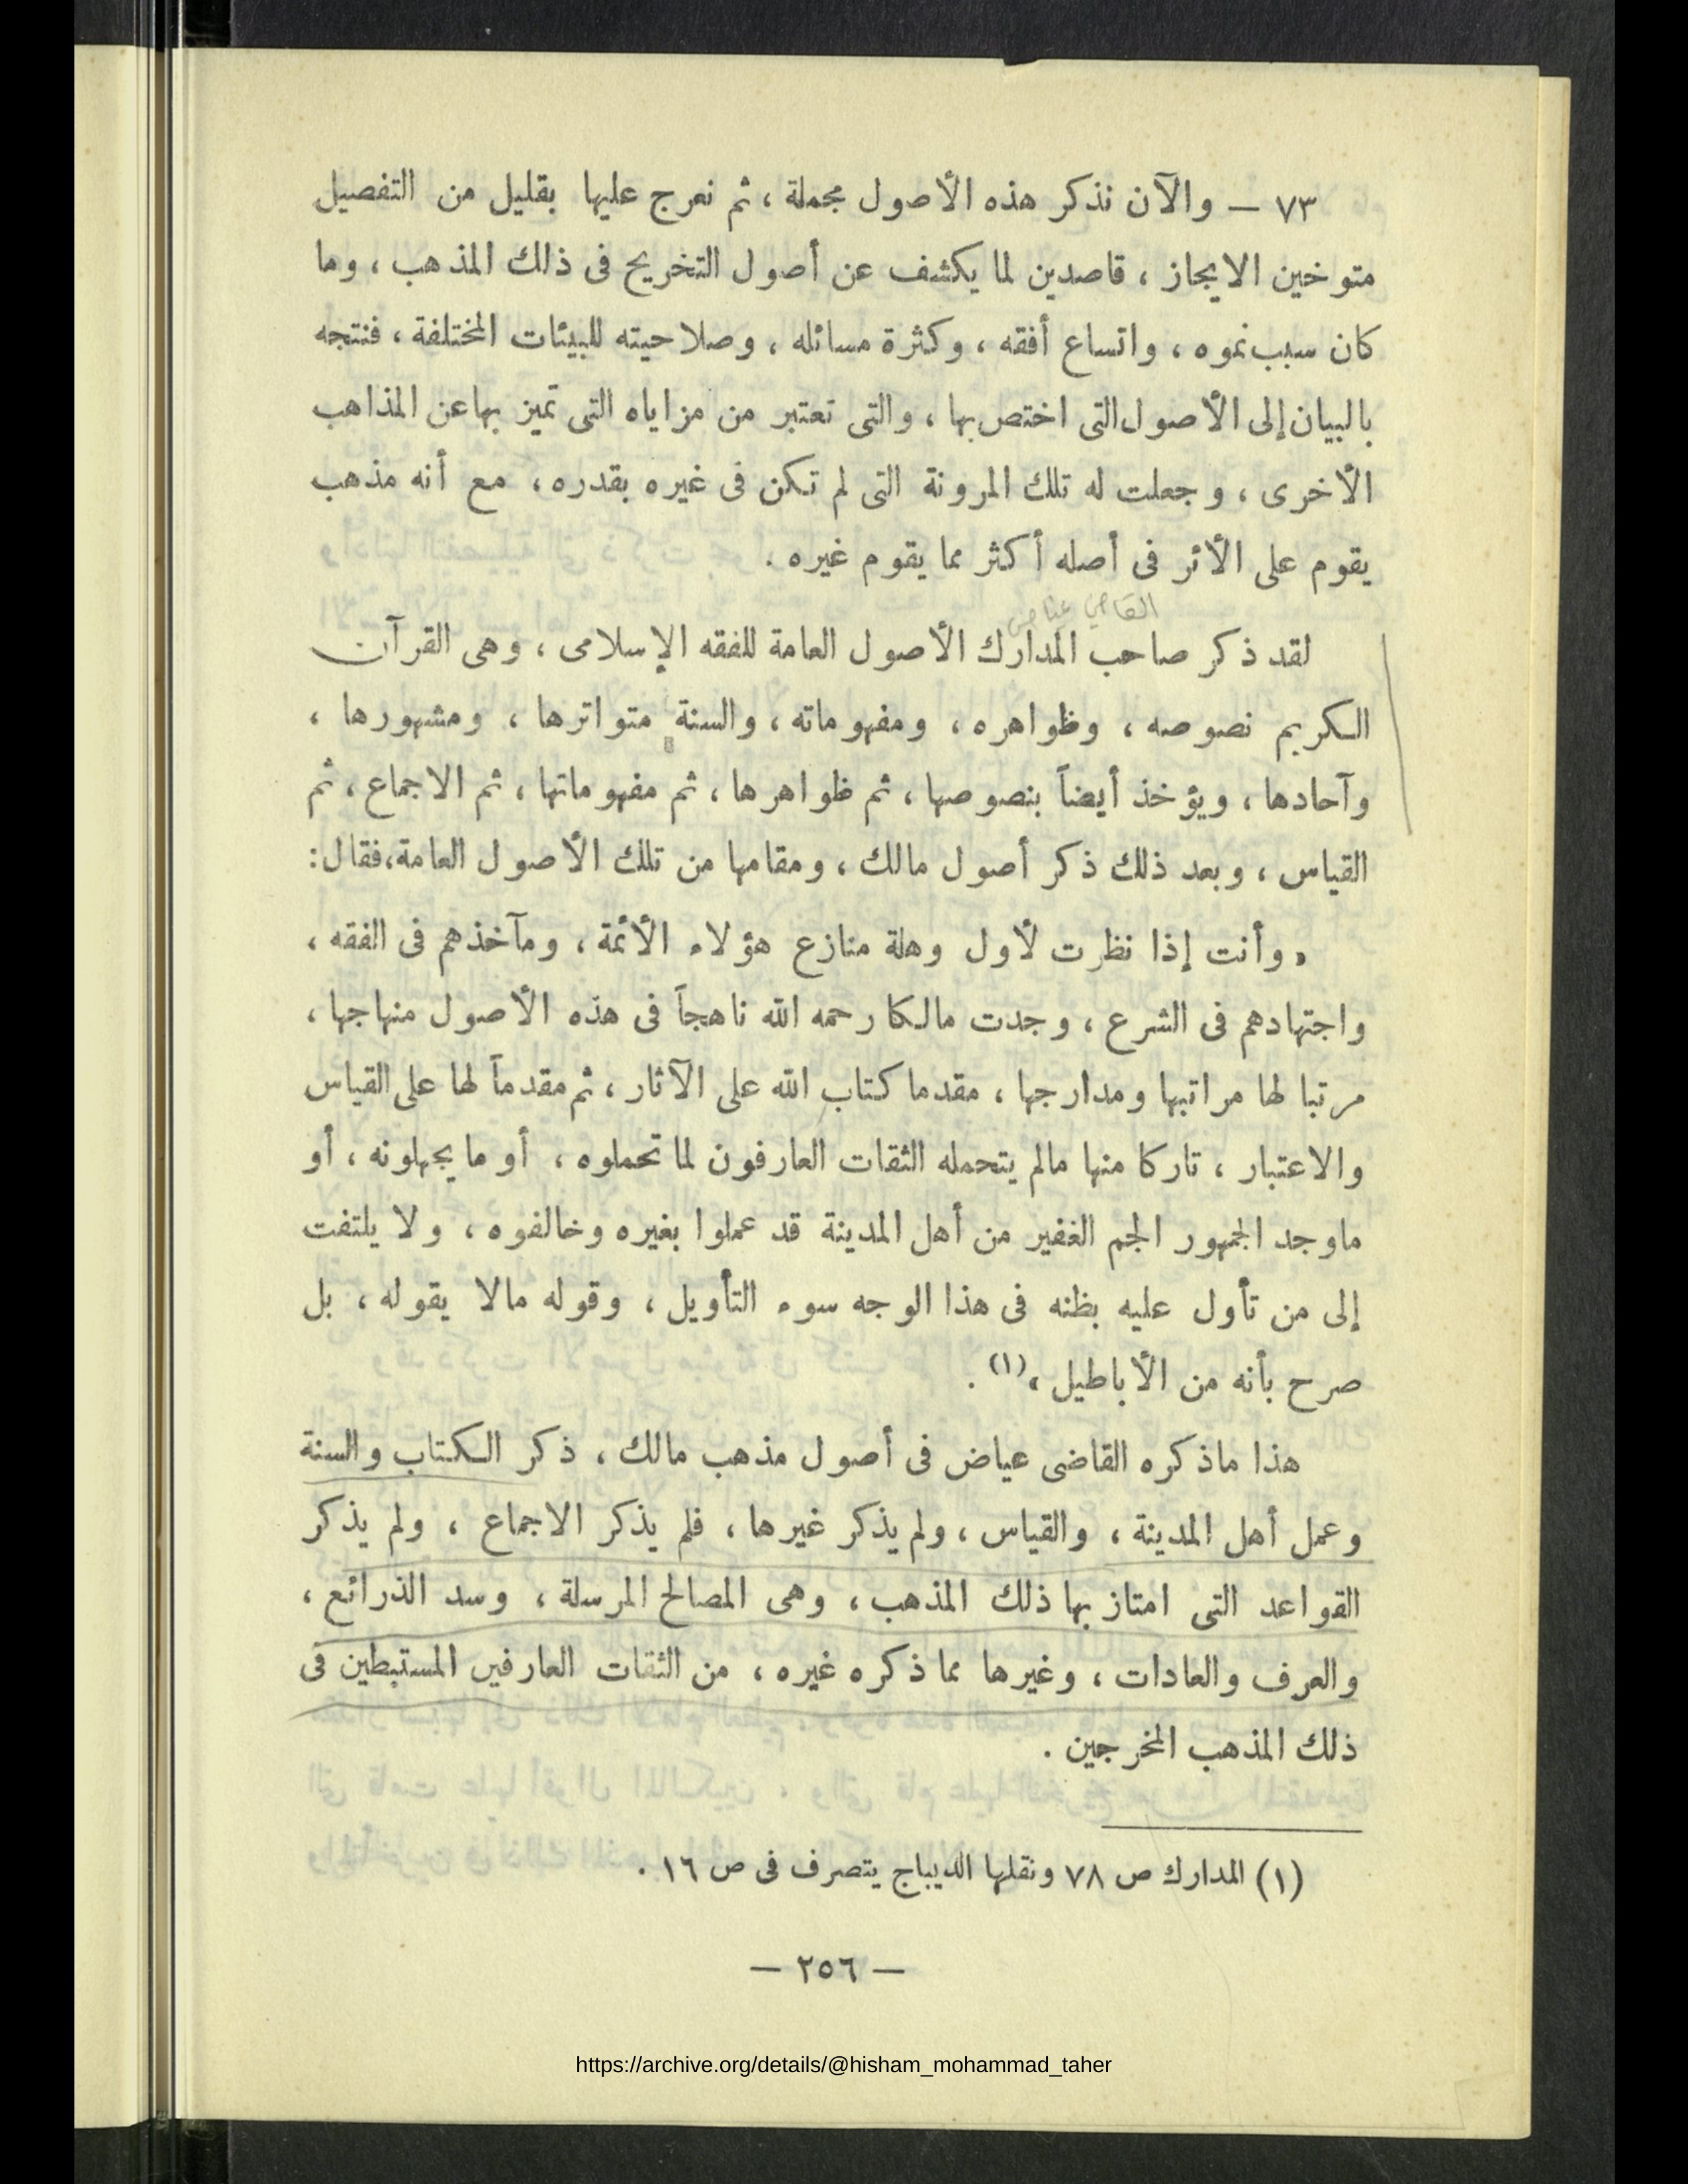 ٧٣ — والآن نذكر هذه الأصول مجملة ، ثم نعرج عليها بقليل من التفصيل
متوخين الايجاز ، قاصدين لما يكشف عن أصول التخريج فى ذلك المذهب ، وما
كان سبب نموه ، واتساع أفقه ، وكثرة مسائله ، وصلاحيته للبيئات المختلفة ، فنتجه
بالبيان إلى الأصول التى اختص بها ، والتى تعتبر من مزاياه التى تميز بها عن المذاهب
الأخرى ، وجعلت له تلك المرونة التى لم تكن فى غيره بقدره ، مع أنه مذهب
يقوم على الأثر فى أصله أكثر مما يقوم غيره .
القاضي عياض
لقد ذكر صاحب المدارك الأصول العامة للفقه الإسلامى ، وهى القرآن
الكريم نصوصه ، وظواهره ، ومفهوماته ، والسنة متواترها ، ومشهورها ،
وآحادها ، ويؤخذ أيضاً بنصوصها ، ثم ظواهرها ، ثم مفهوماتها ، ثم الاجماع ، ثم
القياس ، وبعد ذلك ذكر أصول مالك ، ومقامها من تلك الأصول العامة،فقال:
« وأنت إذا نظرت لأول وهلة منازع هؤلاء الأئمة ، ومآخذهم فى الفقه ،
واجتهادهم فى الشرع ، وجدت مالكا رحمه الله ناهجاً فى هذه الأصول منهاجها ،
مرتبا لها مراتبها ومدارجها ، مقدما كتاب الله على الآثار ، ثم مقدماً لها على القياس
والاعتبار ، تاركا منها مالم يتحمله الثقات العارفون لما تحملوه ، أو ما يجهلونه ، أو
ماوجد الجمهور الجم الغفير من أهل المدينة قد عملوا بغيره وخالفوه ، ولا يلتفت
إلى من تأول عليه بظنه فى هذا الوجه سوء التأويل ، وقوله مالا يقوله ، بل
صرح بأنه من الأباطيل »(١) .
هذا ماذكره القاضى عياض فى أصول مذهب مالك ، ذكر الكتاب والسنة
وعمل أهل المدينة ، والقياس ، ولم يذكر غيرها ، فلم يذكر الاجماع ، ولم يذكر
القواعد التى امتاز بها ذلك المذهب ، وهى المصالح المرسلة ، وسد الذرائع ،
والعرف والعادات ، وغيرها مما ذكره غيره ، من الثقات العارفين المستبطين فى
ذلك المذهب المخرجين .
(١) المدارك ص ٧٨ ونقلها الديباج يتصرف فى ص ١٦ .
— ٢٥٦ —
https://archive.org/details/@hisham_mohammad_taher